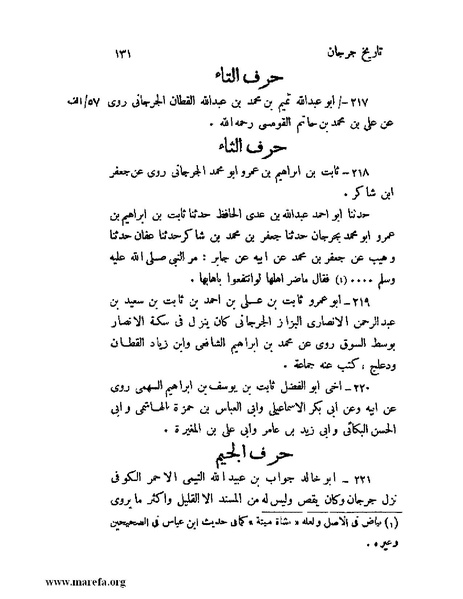 تاريخ جرجان ١٣١
حرف التاء
٢١٧ -/ ابو عبدالله تميم بن محمد بن عبدالله القطان الجرجاني روى ٥٧/الف
عن علي بن محمد بن حاتم القومسي رحمه الله .
حرف الثاء
٢١٨ - ثابت بن ابراهيم بن عمرو ابو محمد الجرجاني روى عن جعفر
ابن شاكر .
حدثنا ابو احمد عبدالله بن عدى الحافظ حدثنا ثابت بن ابراهيم بن
عمرو ابو محمد بجرجان حدثنا جعفر بن محمد بن شاكر حدثنا عفان حدثنا
وهيب عن جعفر بن محمد عن ابيه عن جابر : مر النبي صلى الله عليه
وسلم ٠٠٠٠ (١) فقال ماضر اهلها لو انتفعوا باهابها .
٢١٩ - ابو عمرو ثابت بن عـلى بن احمد بن ثابت بن سعيد بن
عبدالرحمن الانصارى البزاز الجرجاني كان ينزل في سكة الانصار
بوسط السوق روى عن محمد بن ابراهيم الشافعى وابن زياد القطان
ودعلج ، كتب عنه جماعة .
٢٢٠ - اخى ابو الفضل ثابت بن يوسف بن ابراهيم السهمى روى
عن ابيه وعن أبى بكر الاسماعيلى وابى العباس بن حمزة الهاشمى وابى
الحسن البكائى وابى زيد بن عامر وأبى على بن المغيرة .
حرف الجيم
٢٢١ - ابو خالد جواب بن عبيد الله التيمى الاحمر الكوفى
نزل جرجان وكان يقص وليس له من المسند الا القليل واكثر ما يروى
(١) بياض فى الاصل ولعله « بشاة ميتة » كما فى حديث ابن عباس فى الصحيحين
وغيره .
www.marefa.org